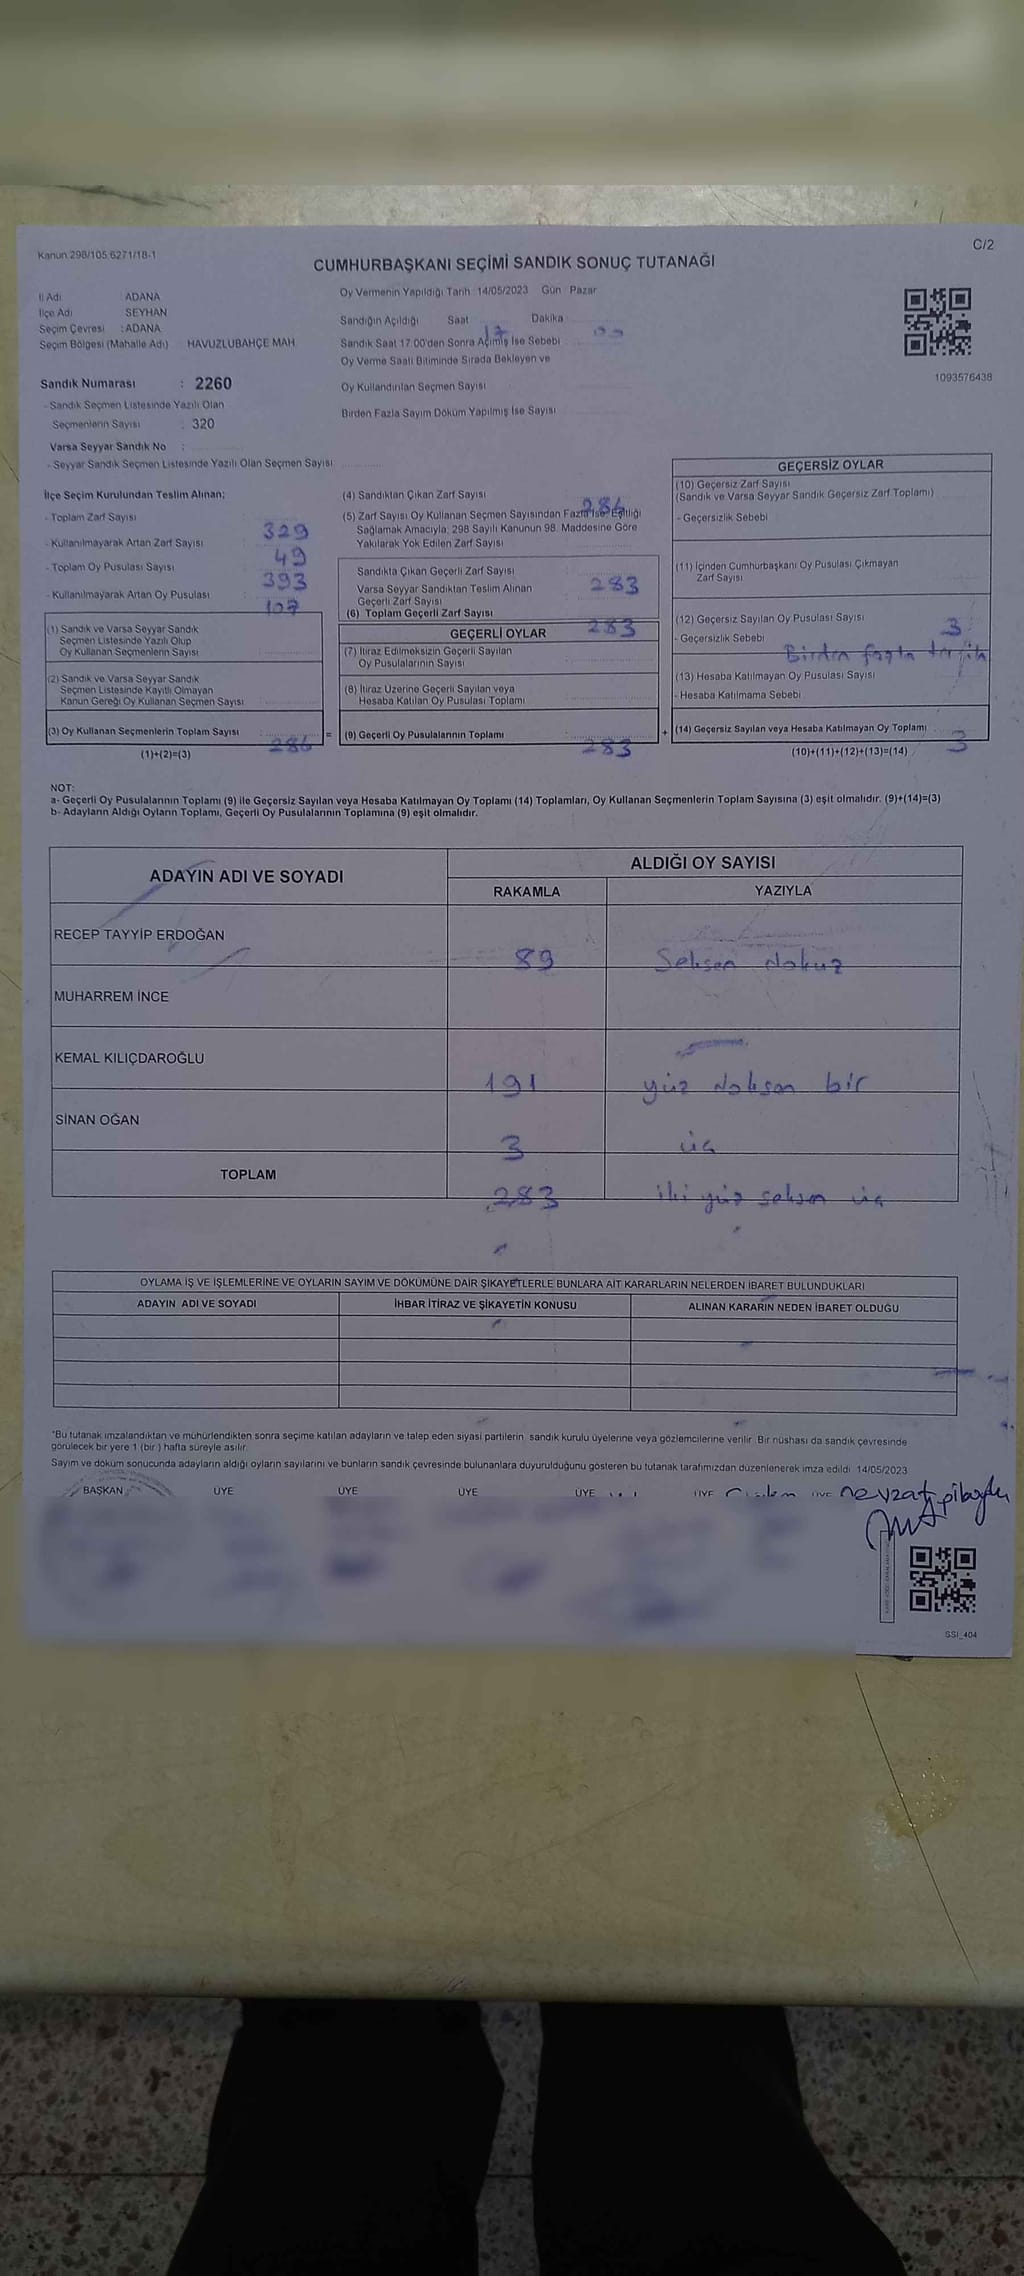 Kanun 298/105,6271/18-1
C/2
CUMHURBAŞKANI SEÇİMİ SANDIK SONUÇ TUTANAĞI
İl Adı ADANA
İlçe Adı SEYHAN
Seçim Çevresi : ADANA
Seçim Bölgesi (Mahalle Adı) HAVUZLUBAHÇE MAH
Oy Vermenin Yapıldığı Tarih : 14/05/2023 Gün Pazar
Sandığın Açıldığı Saat 17 Dakika
Sandık Saat 17.00'den Sonra Açılmış İse Sebebi
Oy Verme Saati Bitiminde Sırada Bekleyen ve
Oy Kullandırılan Seçmen Sayısı
Birden Fazla Sayım Döküm Yapılmış İse Sayısı
1093576438
Sandık Numarası : 2260
- Sandık Seçmen Listesinde Yazılı Olan
Seçmenlerin Sayısı : 320
Varsa Seyyar Sandık No :
- Seyyar Sandık Seçmen Listesinde Yazılı Olan Seçmen Sayısı
İlçe Seçim Kurulundan Teslim Alınan;
- Toplam Zarf Sayısı 329
- Kullanılmayarak Artan Zarf Sayısı 49
- Toplam Oy Pusulası Sayısı 393
- Kullanılmayarak Artan Oy Pusulası 107
(1) Sandık ve Varsa Seyyar Sandık
Seçmen Listesinde Yazılı Olup
Oy Kullanan Seçmenlerin Sayısı
(2) Sandık ve Varsa Seyyar Sandık
Seçmen Listesinde Kayıtlı Olmayan
Kanun Gereği Oy Kullanan Seçmen Sayısı
(3) Oy Kullanan Seçmenlerin Toplam Sayısı 286 =
(1)+(2)=(3)
(4) Sandıktan Çıkan Zarf Sayısı 286
(5) Zarf Sayısı Oy Kullanan Seçmen Sayısından Fazla İse Eşitliği
Sağlamak Amacıyla; 298 Sayılı Kanunun 98. Maddesine Göre
Yakılarak Yok Edilen Zarf Sayısı
Sandıkta Çıkan Geçerli Zarf Sayısı 283
Varsa Seyyar Sandıktan Teslim Alınan
Geçerli Zarf Sayısı
(6) Toplam Geçerli Zarf Sayısı 283
GEÇERLİ OYLAR
(7) İtiraz Edilmeksizin Geçerli Sayılan
Oy Pusulalarının Sayısı
(8) İtiraz Üzerine Geçerli Sayılan veya
Hesaba Katılan Oy Pusulası Toplamı
(9) Geçerli Oy Pusulalarının Toplamı 283 +
GEÇERSİZ OYLAR
(10) Geçersiz Zarf Sayısı
(Sandık ve Varsa Seyyar Sandık Geçersiz Zarf Toplamı)
- Geçersizlik Sebebi
(11) İçinden Cumhurbaşkanı Oy Pusulası Çıkmayan
Zarf Sayısı
(12) Geçersiz Sayılan Oy Pusulası Sayısı 3
- Geçersizlik Sebebi Birden fazla tercih
(13) Hesaba Katılmayan Oy Pusulası Sayısı
- Hesaba Katılmama Sebebi
(14) Geçersiz Sayılan veya Hesaba Katılmayan Oy Toplamı 3
(10)+(11)+(12)+(13)=(14)
NOT:
a- Geçerli Oy Pusulalarının Toplamı (9) ile Geçersiz Sayılan veya Hesaba Katılmayan Oy Toplamı (14) Toplamları, Oy Kullanan Seçmenlerin Toplam Sayısına (3) eşit olmalıdır. (9)+(14)=(3)
b- Adayların Aldığı Oyların Toplamı, Geçerli Oy Pusulalarının Toplamına (9) eşit olmalıdır.
ADAYIN ADI VE SOYADI
ALDIĞI OY SAYISI
RAKAMLA YAZIYLA
RECEP TAYYİP ERDOĞAN 89 Seksen dokuz
MUHARREM İNCE
KEMAL KILIÇDAROĞLU 191 yüz doksan bir
SİNAN OĞAN 3 üç
TOPLAM 283 iki yüz seksen üç
OYLAMA İŞ VE İŞLEMLERİNE VE OYLARIN SAYIM VE DÖKÜMÜNE DAİR ŞİKAYETLERLE BUNLARA AİT KARARLARIN NELERDEN İBARET BULUNDUKLARI
ADAYIN ADI VE SOYADI İHBAR İTİRAZ VE ŞİKAYETİN KONUSU ALINAN KARARIN NEDEN İBARET OLDUĞU
*Bu tutanak imzalandıktan ve mühürlendikten sonra seçime katılan adayların ve talep eden siyasi partilerin sandık kurulu üyelerine veya gözlemcilerine verilir. Bir nüshası da sandık çevresinde
görülecek bir yere 1 (bir) hafta süreyle asılır.
Sayım ve döküm sonucunda adayların aldığı oyların sayılarını ve bunların sandık çevresinde bulunanlara duyurulduğunu gösteren bu tutanak tarafımızdan düzenlenerek imza edildi. 14/05/2023
BAŞKAN ÜYE ÜYE ÜYE ÜYE ÜYE ÜYE nevzat
SSI_404